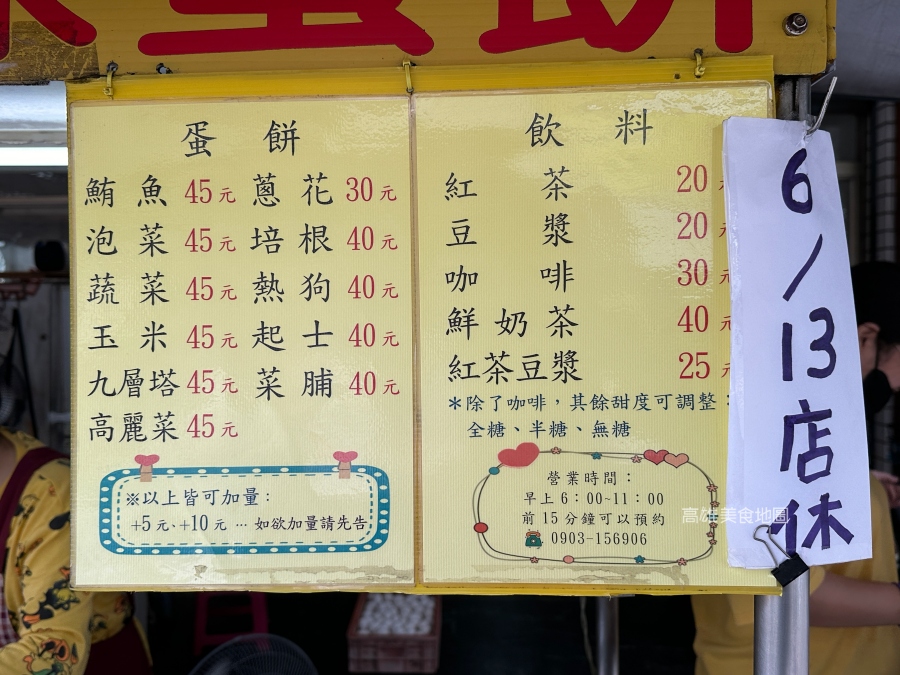 蛋餅
蛋餅
鮪魚 45元 蔥花 30元
泡菜 45元 培根 40元
蔬菜 45元 熱狗 40元
玉米 45元 起士 40元
九層塔 45元 菜脯 40元
高麗菜 45元
※以上皆可加量：
+5元、+10元 … 如欲加量請先告
飲料
紅茶 20元
豆漿 20
咖啡 30元
鮮奶茶 40元
紅茶豆漿 25元
＊除了咖啡，其餘甜度可調整：
全糖、半糖、無糖
營業時間：
早上 6：00~11：00
前 15 分鐘可以預約
0903-156906
6/13店休
高雄美食地圖